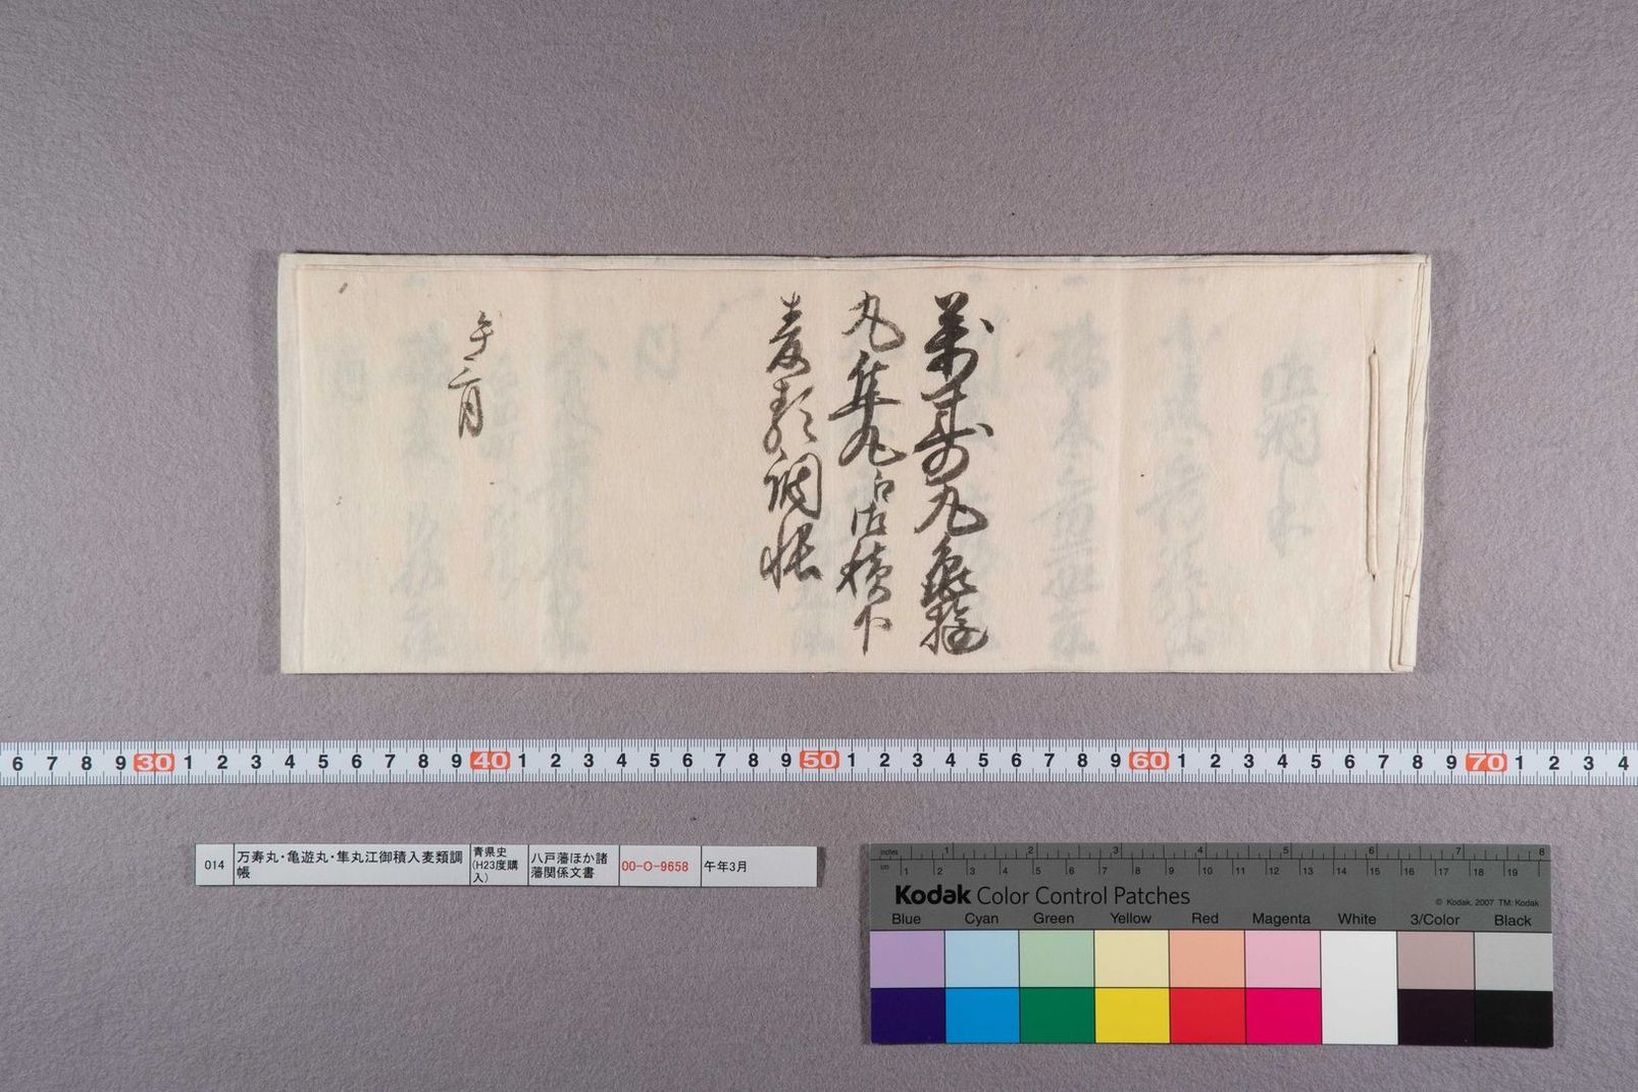 萬壽丸亀遊
丸隼丸御積
麦類調帳
午三月
6 7 8 9 30 1 2 3 4 5 6 7 8 9 40 1 2 3 4 5 6 7 8 9 50 1 2 3 4 5 6 7 8 9 60 1 2 3 4 5 6 7 8 9 70 1 2 3 4
014
万寿丸・亀遊丸・隼丸江御積入麦類調
帳
青県史
(H23度購
入)
八戸藩ほか諸
藩関係文書
00-O-9658
午年3月
inches 1 2 3 4 5 6 7 8
cm 1 2 3 4 5 6 7 8 9 10 11 12 13 14 15 16 17 18 19
Kodak Color Control Patches
© Kodak, 2007 TM: Kodak
Blue Cyan Green Yellow Red Magenta White 3/Color Black